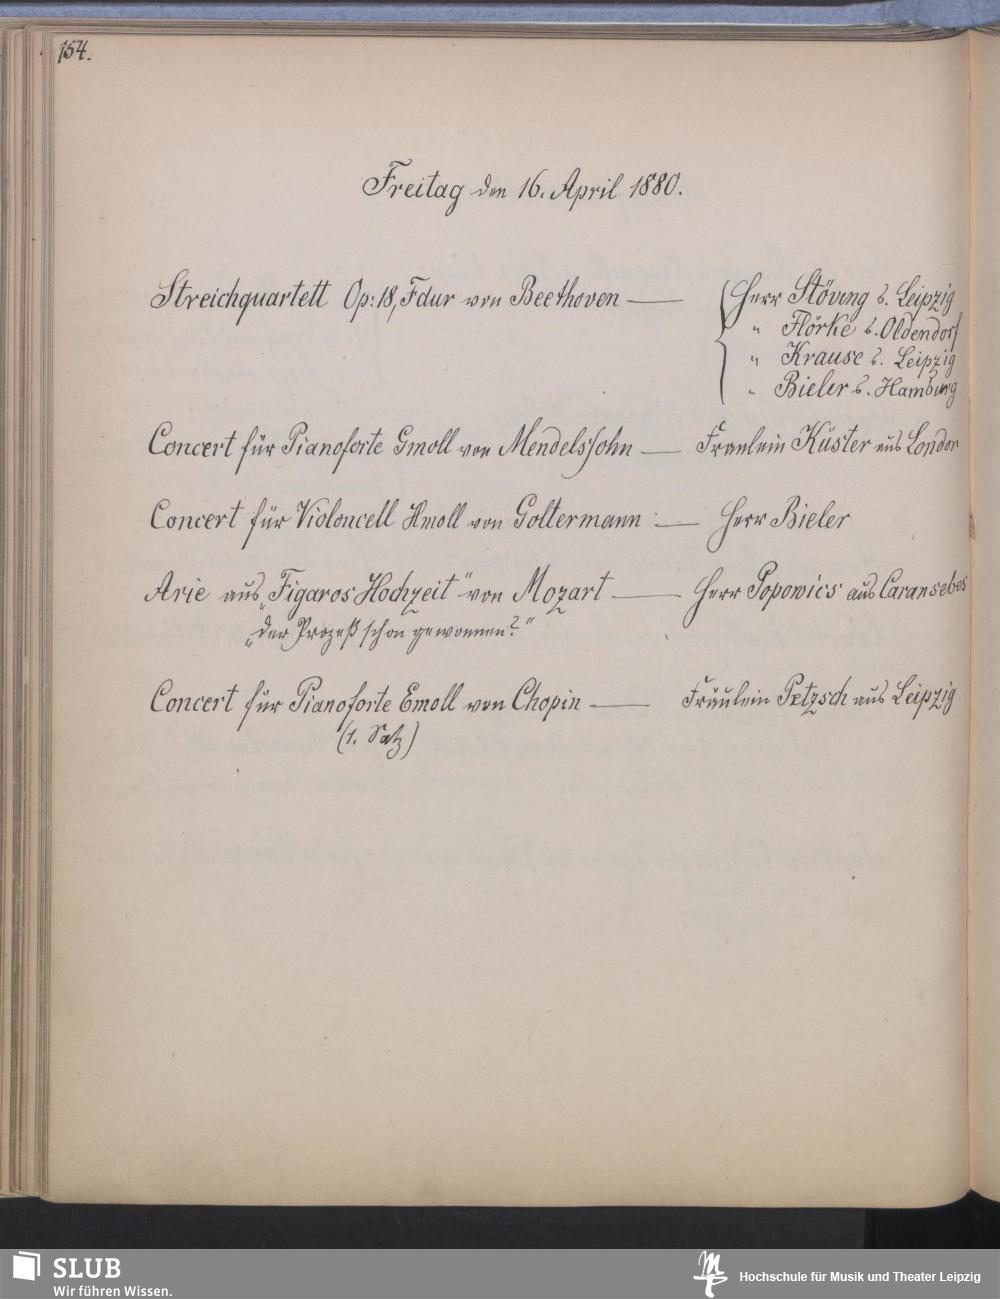 154.
Freitag den 16. April 1880.
Streichquartett Op: 18, Fdur von Beethoven — Herr Stöving a. Leipzig
" Flörke a. Oldendorf
" Krause a. Leipzig
" Bieler a. Hamburg
Concert für Pianoforte Gmoll von Mendelssohn — Fraulein Küster aus London
Concert für Violoncell Hmoll von Goltermann — Herr Bieler
Arie aus „Figaros Hochzeit" von Mozart — Herr Popowics aus Caransebes
„Der Prozeß schon gewonnen?"
Concert für Pianoforte Emoll von Chopin — Fräulein Petzsch aus Leipzig
(1. Satz)
SLUB
Wir führen Wissen.
Hochschule für Musik und Theater Leipzig